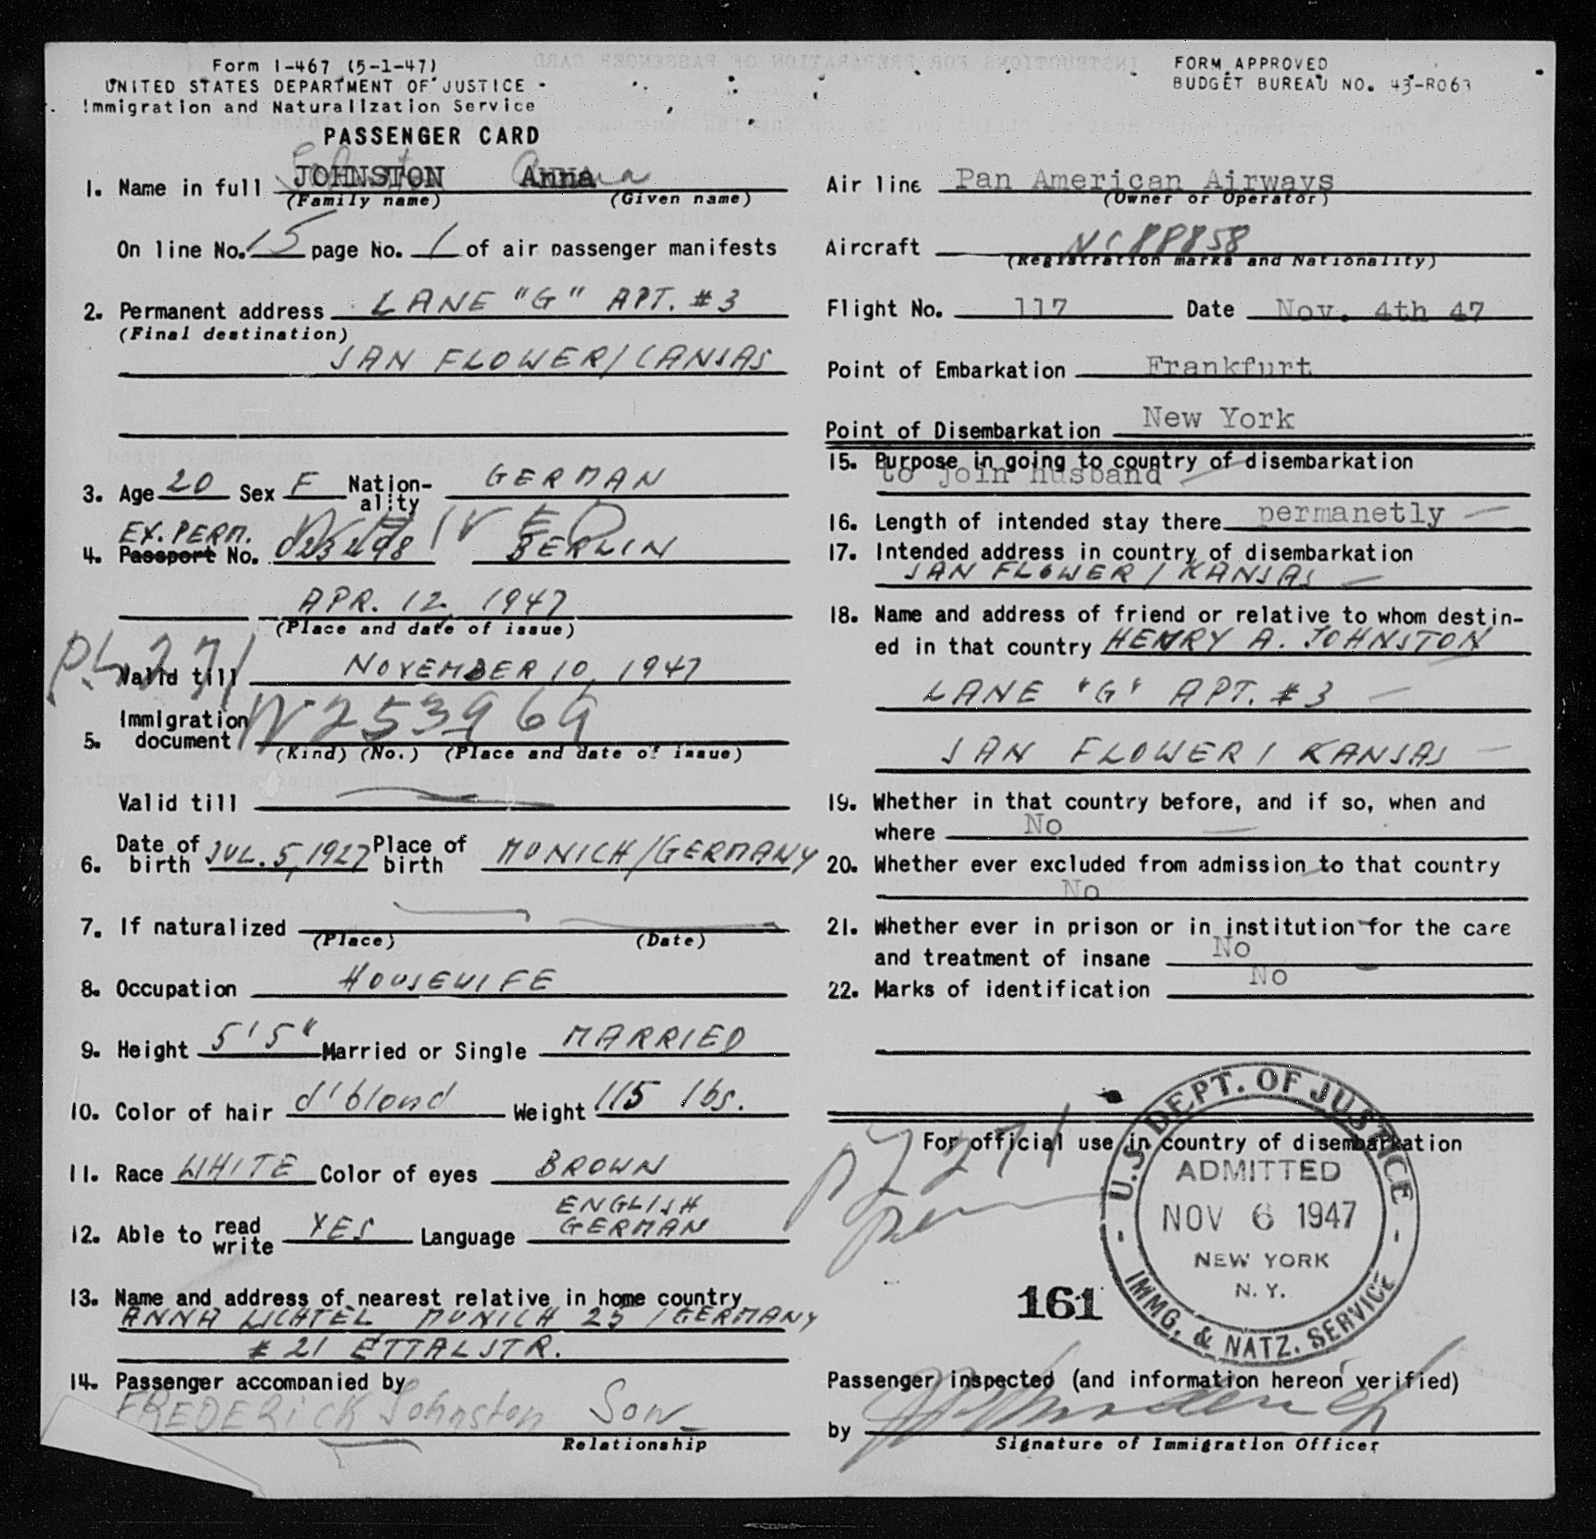 Form I-467 (5-1-47)
UNITED STATES DEPARTMENT OF JUSTICE
Immigration and Naturalization Service
PASSENGER CARD
FORM APPROVED
BUDGET BUREAU NO. 43-R063
1. Name in full JOHNSTON Anna
(Family name) (Given name)
On line No. 15 page No. 1 of air passenger manifests
2. Permanent address LANE "G" APT. #3
(Final destination)
SAN FLOWER/CANSAS
3. Age 20 Sex F Nationality GERMAN
EX. PERM.
4. Passport No. BERLIN
APR. 12, 1947
(Place and date of issue)
Valid till NOVEMBER 10, 1947
5. Immigration document 253969
(Kind) (No.) (Place and date of issue)
Valid till
6. Date of birth JUL. 5, 1927 Place of birth MUNICH/GERMANY
7. If naturalized
(Place) (Date)
8. Occupation HOUSEWIFE
9. Height 5'5" Married or Single MARRIED
10. Color of hair d'blond Weight 115 lbs.
11. Race WHITE Color of eyes BROWN
12. Able to read write YES Language ENGLISH GERMAN
13. Name and address of nearest relative in home country
ANNA WICHTEL MUNICH 25 /GERMANY
# 21 ETTALSTR.
14. Passenger accompanied by
FREDERICK Johnston Son
Relationship
Air line Pan American Airways
(Owner or Operator)
Aircraft NC88858
(Registration marks and Nationality)
Flight No. 117 Date Nov. 4th 47
Point of Embarkation Frankfurt
Point of Disembarkation New York
15. Purpose in going to country of disembarkation
to join husband
16. Length of intended stay there permanetly
17. Intended address in country of disembarkation
SAN FLOWER / KANSAS
18. Name and address of friend or relative to whom destin-
ed in that country HENRY A. JOHNSTON
LANE "G" APT. #3
SAN FLOWER / KANSAS
19. Whether in that country before, and if so, when and
where No
20. Whether ever excluded from admission to that country
No
21. Whether ever in prison or in institution for the care
and treatment of insane No
22. Marks of identification No
For official use in country of disembarkation
U.S. DEPT. OF JUSTICE
ADMITTED
NOV 6 1947
NEW YORK
N. Y.
IMMG. & NATZ. SERVICE
161
Passenger inspected (and information hereon verified)
by
Signature of Immigration Officer